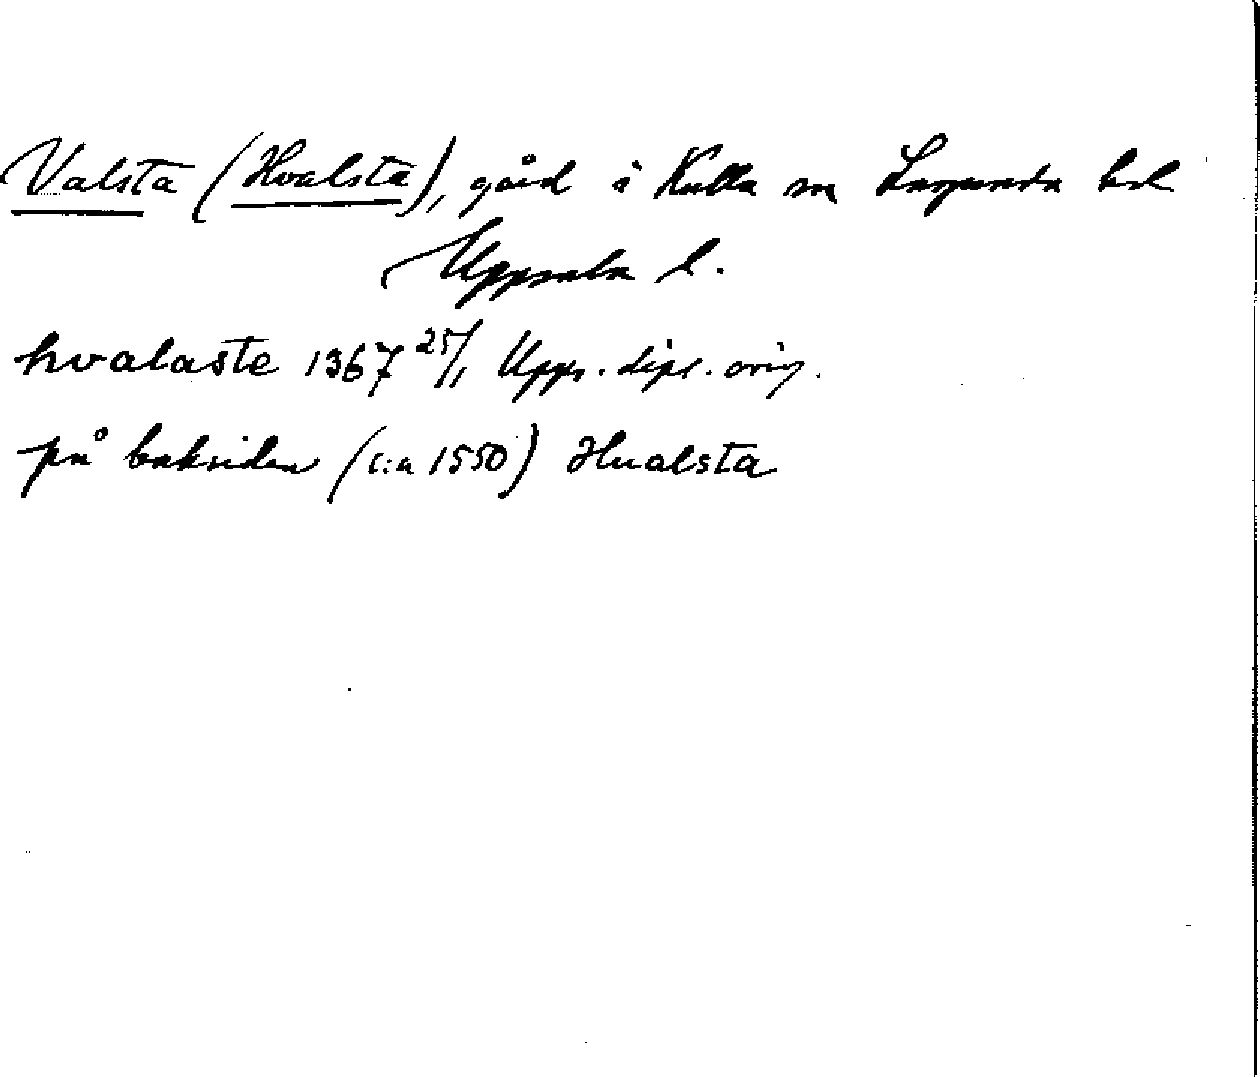 Valsta (Hvalsta), gård i Kulla sn Lagunda hd
Uppsala l.
hvalaste 1367 25/1 Upps. dipl. orig.
på baksidan (c:a 1550) Hualsta